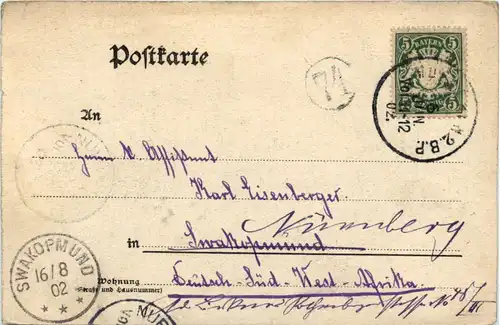 Postkarte
5 BAYERN 5
5 5
74
JUN. 11-12
02.
2.B.P.
An
Herrn
Karl Eisenberger
Nürnberg
in Swakopmund
Wohnung
(Straße und Hausnummer)
Deutsch-Süd-West-Afrika
SWAKOPMUND
16/8
02
* * *
NUR